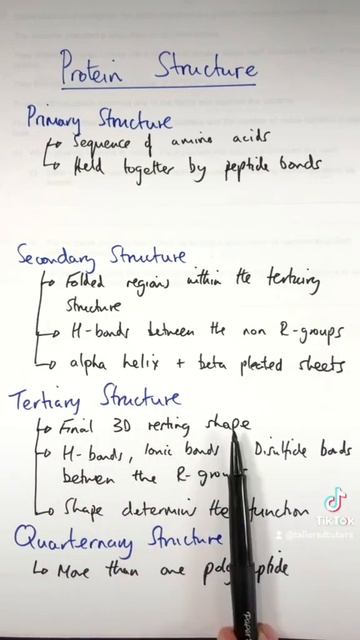 Protein Structure
Primary Structure
Sequence of amino acids
Held together by peptide bonds
Secondary Structure
Folded regions within the tertiary
structure
H-bonds between the non R-groups
alpha helix + beta pleated sheets
Tertiary Structure
Final 3D resting shape
H-bonds, Ionic bonds Disulfide bonds
between the R-groups
Shape determins the function
Quarternary Structure
More than one polypeptide
TikTok
@tailoredtutors